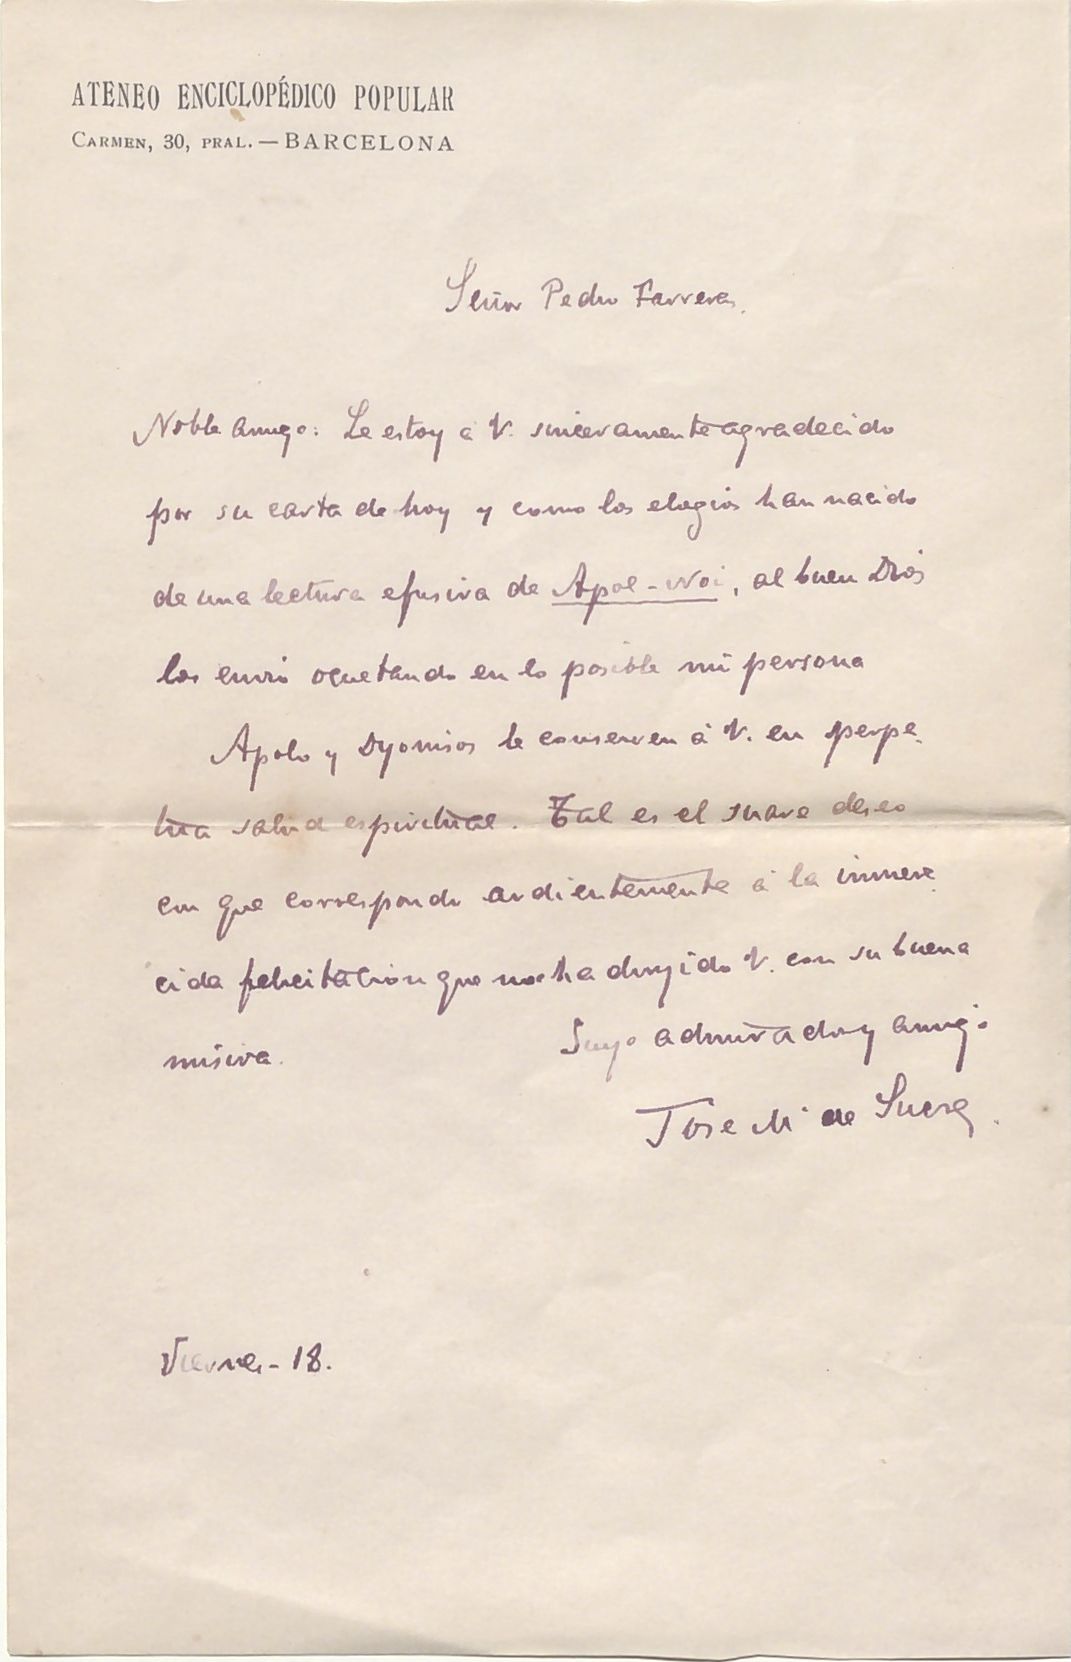 ATENEO ENCICLOPÉDICO POPULAR
CARMEN, 30, PRAL. — BARCELONA
Señor Pedro Farreras.
Noble amigo: Le estoy á V. sinceramente agradecido
por su carta de hoy y como los elogios han nacido
de una lectura efusiva de Apol-Noi, al buen Dios
los envio ocultando en lo posible mi persona
Apolo y Dyonisos le conserven á V. en perpe-
tua salud espiritual. Tal es el suave deseo
con que correspondo ardientemente á la inmere-
cida felicitación que me ha dirijido V. con su buena
misiva.
Suyo admirador y amigo
Jose Mª de Sucre.
Viernes-18.